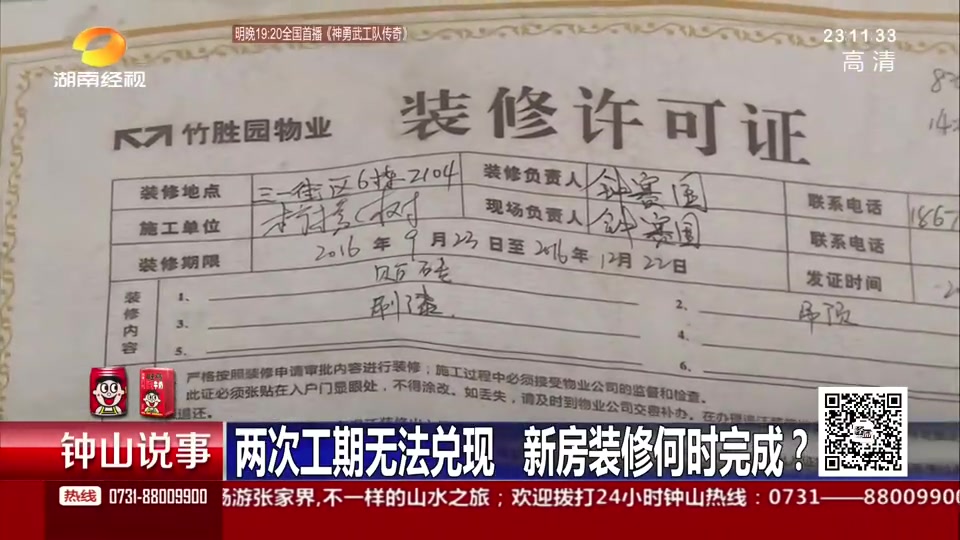 明晚19:20全国首播《神勇武工队传奇》
23 11 33
高清
湖南经视
竹胜园物业
装修许可证
装修地点 三一街区6栋-2104 装修负责人 钟赛国 联系电话 1867
施工单位 现场负责人 钟赛国 联系电话
装修期限 2016年9月23日至2016年12月22日 发证时间
装修内容
1、贴砖 2、吊顶
3、刷漆 4、
5、 6、
严格按照装修申请审批内容进行装修；施工过程中必须接受物业公司的监督和检查。
此证必须张贴在入户门显眼处，不得涂改。如丢失，请及时到物业公司交费补办。在办理
退还。
钟山说事
两次工期无法兑现 新房装修何时完成？
热线 0731-88009900
游张家界,不一样的山水之旅；欢迎拨打24小时钟山热线：0731——8800990